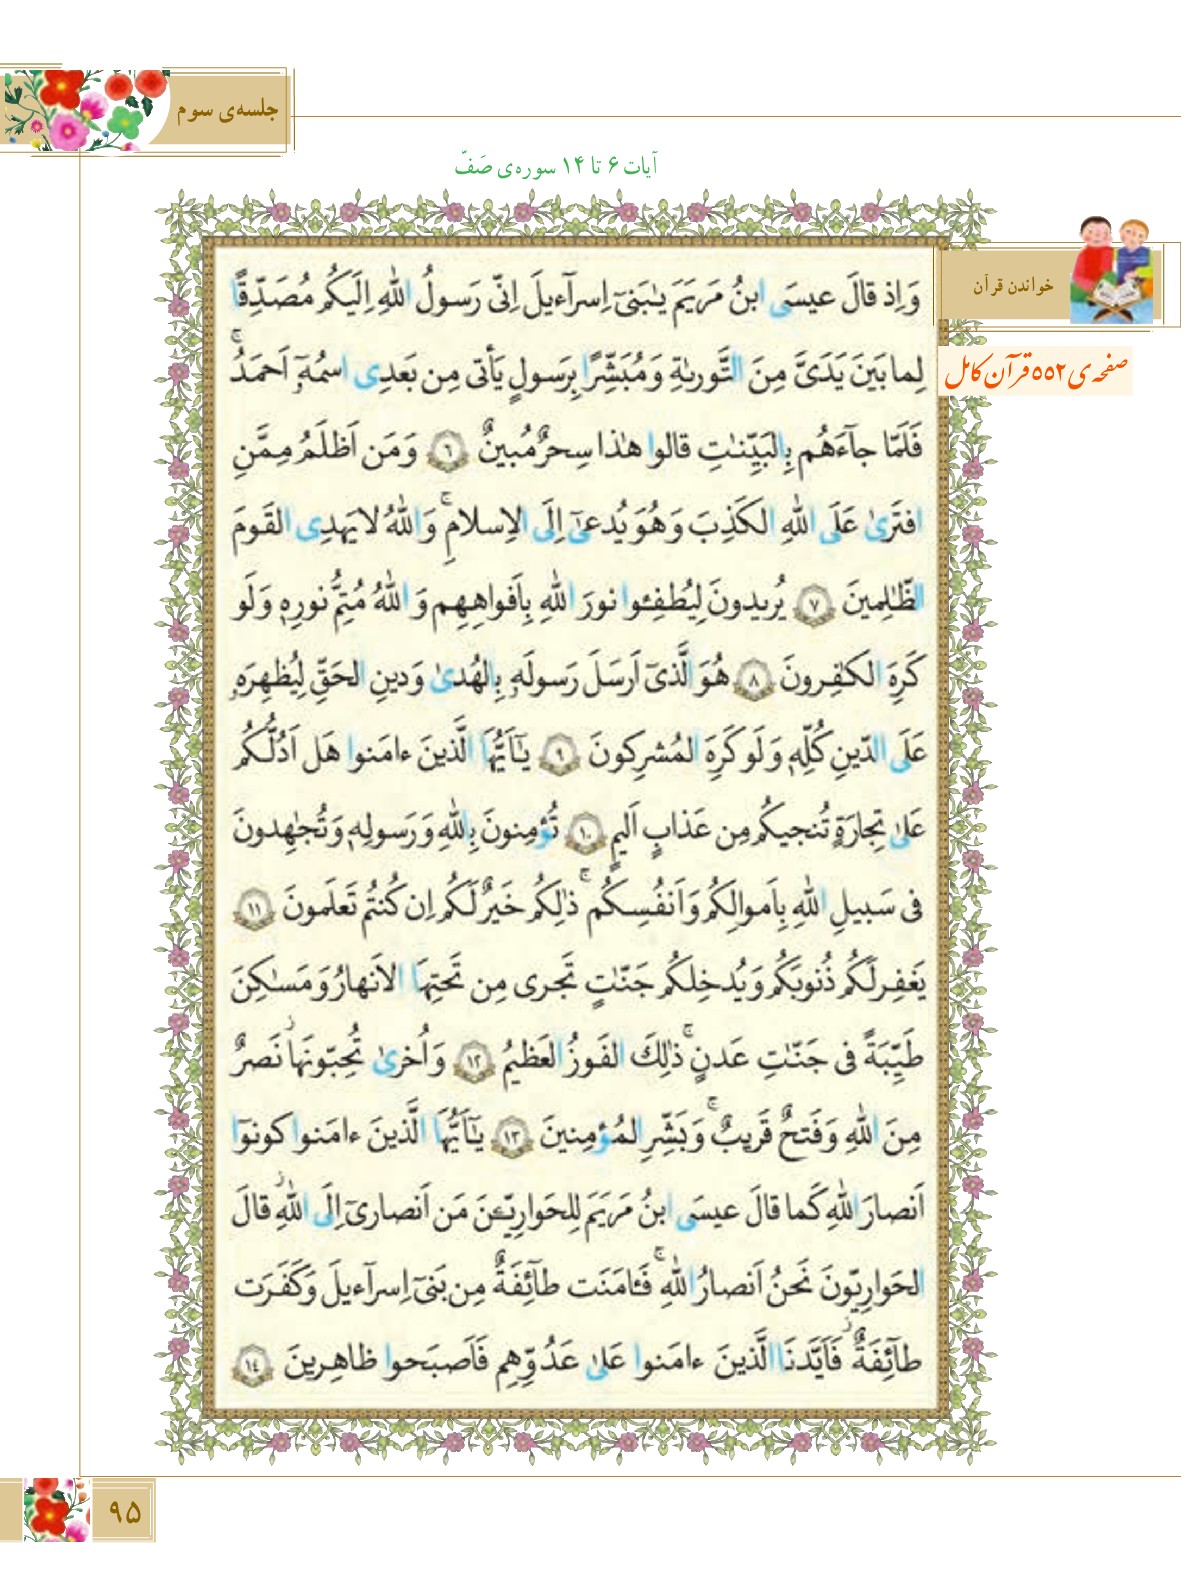 جلسه‌ی سوم
آیات ۶ تا ۱۴ سوره‌ی صَفّ
خواندن قرآن
صفحه‌ی ۵۵۲ قرآن کامل
وَ اِذ قالَ عیسَی ابنُ مَریَمَ یـٰبَنیٓ اِسرآءیلَ اِنّی رَسولُ اللّٰهِ اِلَیکُم مُصَدِّقًا
لِما بَینَ یَدَیَّ مِنَ التَّوریٰةِ وَ مُبَشِّرًا بِرَسولٍ یَأتی مِن بَعدِی اسمُهٓ اَحمَدُ ۚ
فَلَمّا جآءَهُم بِالبَیِّنـٰتِ قالوا هـٰذا سِحرٌ مُبینٌ ﴿٦﴾ وَ مَن اَظلَمُ مِمَّنِ
افتَریٰ عَلَی اللّٰهِ الکَذِبَ وَ هُوَ یُدعیٰٓ اِلَی الاِسلامِ ۚ وَ اللّٰهُ لا یَهدِی القَومَ
الظّـٰلِمینَ ﴿٧﴾ یُریدونَ لِیُطفِـٔوا نورَ اللّٰهِ بِاَفواهِهِم وَ اللّٰهُ مُتِمُّ نورِهٖ وَ لَو
کَرِهَ الکـٰفِرونَ ﴿٨﴾ هُوَ الَّذیٓ اَرسَلَ رَسولَهٗ بِالهُدیٰ وَ دینِ الحَقِّ لِیُظهِرَهٗ
عَلَی الدّینِ کُلِّهٖ وَ لَو کَرِهَ المُشرِکونَ ﴿٩﴾ یـٰٓاَیُّهَا الَّذینَ ءامَنوا هَل اَدُلُّکُم
عَلیٰ تِجارَةٍ تُنجیکُم مِن عَذابٍ اَلیمٍ ﴿١٠﴾ تُؤمِنونَ بِاللّٰهِ وَ رَسولِهٖ وَ تُجـٰهِدونَ
فی سَبیلِ اللّٰهِ بِاَموالِکُم وَ اَنفُسِکُم ۚ ذٰلِکُم خَیرٌ لَکُم اِن کُنتُم تَعلَمونَ ﴿١١﴾
یَغفِر لَکُم ذُنوبَکُم وَ یُدخِلکُم جَنّـٰتٍ تَجری مِن تَحتِهَا الاَنهارُ وَ مَسـٰکِنَ
طَیِّبَةً فی جَنّـٰتِ عَدنٍ ۚ ذٰلِکَ الفَوزُ العَظیمُ ﴿١٢﴾ وَ اُخریٰ تُحِبّونَها نَصرٌ
مِنَ اللّٰهِ وَ فَتحٌ قَریبٌ ۚ وَ بَشِّرِ المُؤمِنینَ ﴿١٣﴾ یـٰٓاَیُّهَا الَّذینَ ءامَنوا کونوٓا
اَنصارَ اللّٰهِ کَما قالَ عیسَی ابنُ مَریَمَ لِلحَوارِیّـٖنَ مَن اَنصاریٓ اِلَی اللّٰهِ قالَ
الحَوارِیّونَ نَحنُ اَنصارُ اللّٰهِ ۚ فَـٔامَنَت طآئِفَةٌ مِن بَنیٓ اِسرآءیلَ وَ کَفَرَت
طآئِفَةٌ فَاَیَّدنَا الَّذینَ ءامَنوا عَلیٰ عَدُوِّهِم فَاَصبَحوا ظاهِرینَ ﴿١٤﴾
۹۵